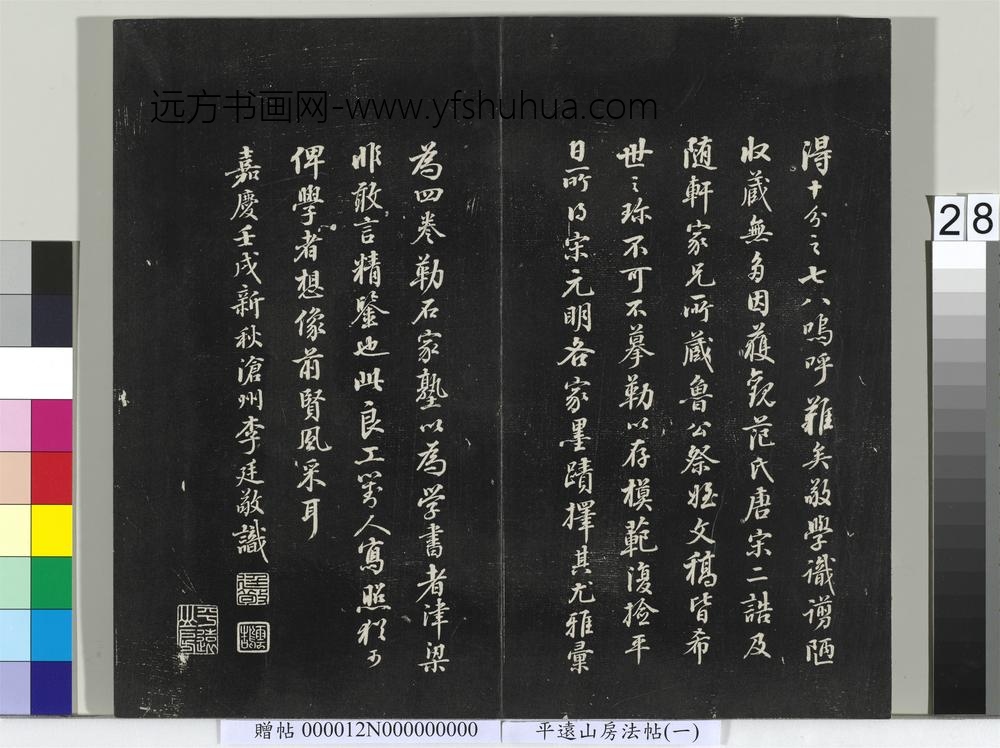 远方书画网-www.yfshuhua.com
得十分之七八嗚呼難矣敬學識謭陋
收藏無多因獲觀范氏唐宋二誥及
随軒家兄所藏魯公祭姪文稿皆希
世之珎不可不摹勒以存模範復撿平
日所得宋元明各家墨蹟擇其尤雅彙
為四卷勒石家塾以為学書者津梁
非敢言精鑒也此良工對人寫照猶可
俾學者想像前賢風采耳
嘉慶壬戌新秋滄州李廷敬識
廷敬
平遠山房
28
贈帖 000012N000000000
平遠山房法帖(一)